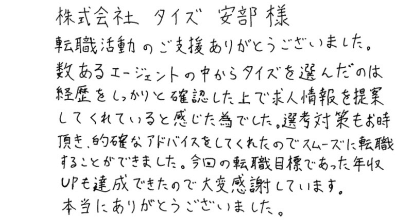 株式会社 タイズ 安部様
転職活動のご支援ありがとうございました。
数あるエージェントの中からタイズを選んだのは
経歴をしっかりと確認した上で求人情報を提案
してくれていると感じた為でした。選考対策もお時
頂き、的確なアドバイスをしてくれたのでスムーズに転職
することができました。今回の転職目標であった年収
UPも達成できたので大変感謝しています。
本当にありがとうございました。